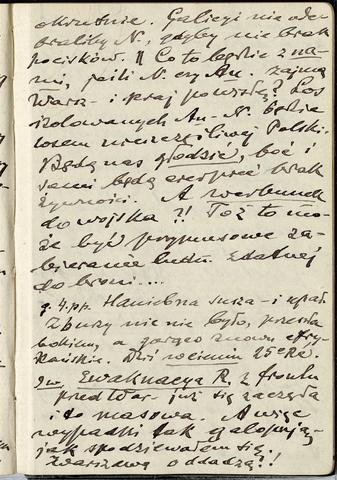 okrutnie. Galicyi nie ode-
braliby N., gdyby nie brak
pocisków. || Co to będzie z na-
mi, jeśli N. czy Au. zajmą
Warsz. i kraj powiślą? Los
izolowanych Au.-N. będzie
losem nieszczęśliwej Polski.
Będą nas głodzić, boć i
sami będą cierpieć brak
żywności. A werbunek
do wojska?! Toż to mo-
że być przymusowe za-
bieranie ludu zdatnej
do broni....
g. 4.pp. Haniebna susza - i upał.
Zburzy nic nie było, przeszła
bokiem, a gorąco znowu afry-
kańskie. Dziś wcieniu 25° Re.
9w. Ewakuacya R. z frontu
przed War- już się zaczęła
i to masowa. A więc
wypadki tak galopują,-
jak spodziewałem się
Warszawę oddadzą?!